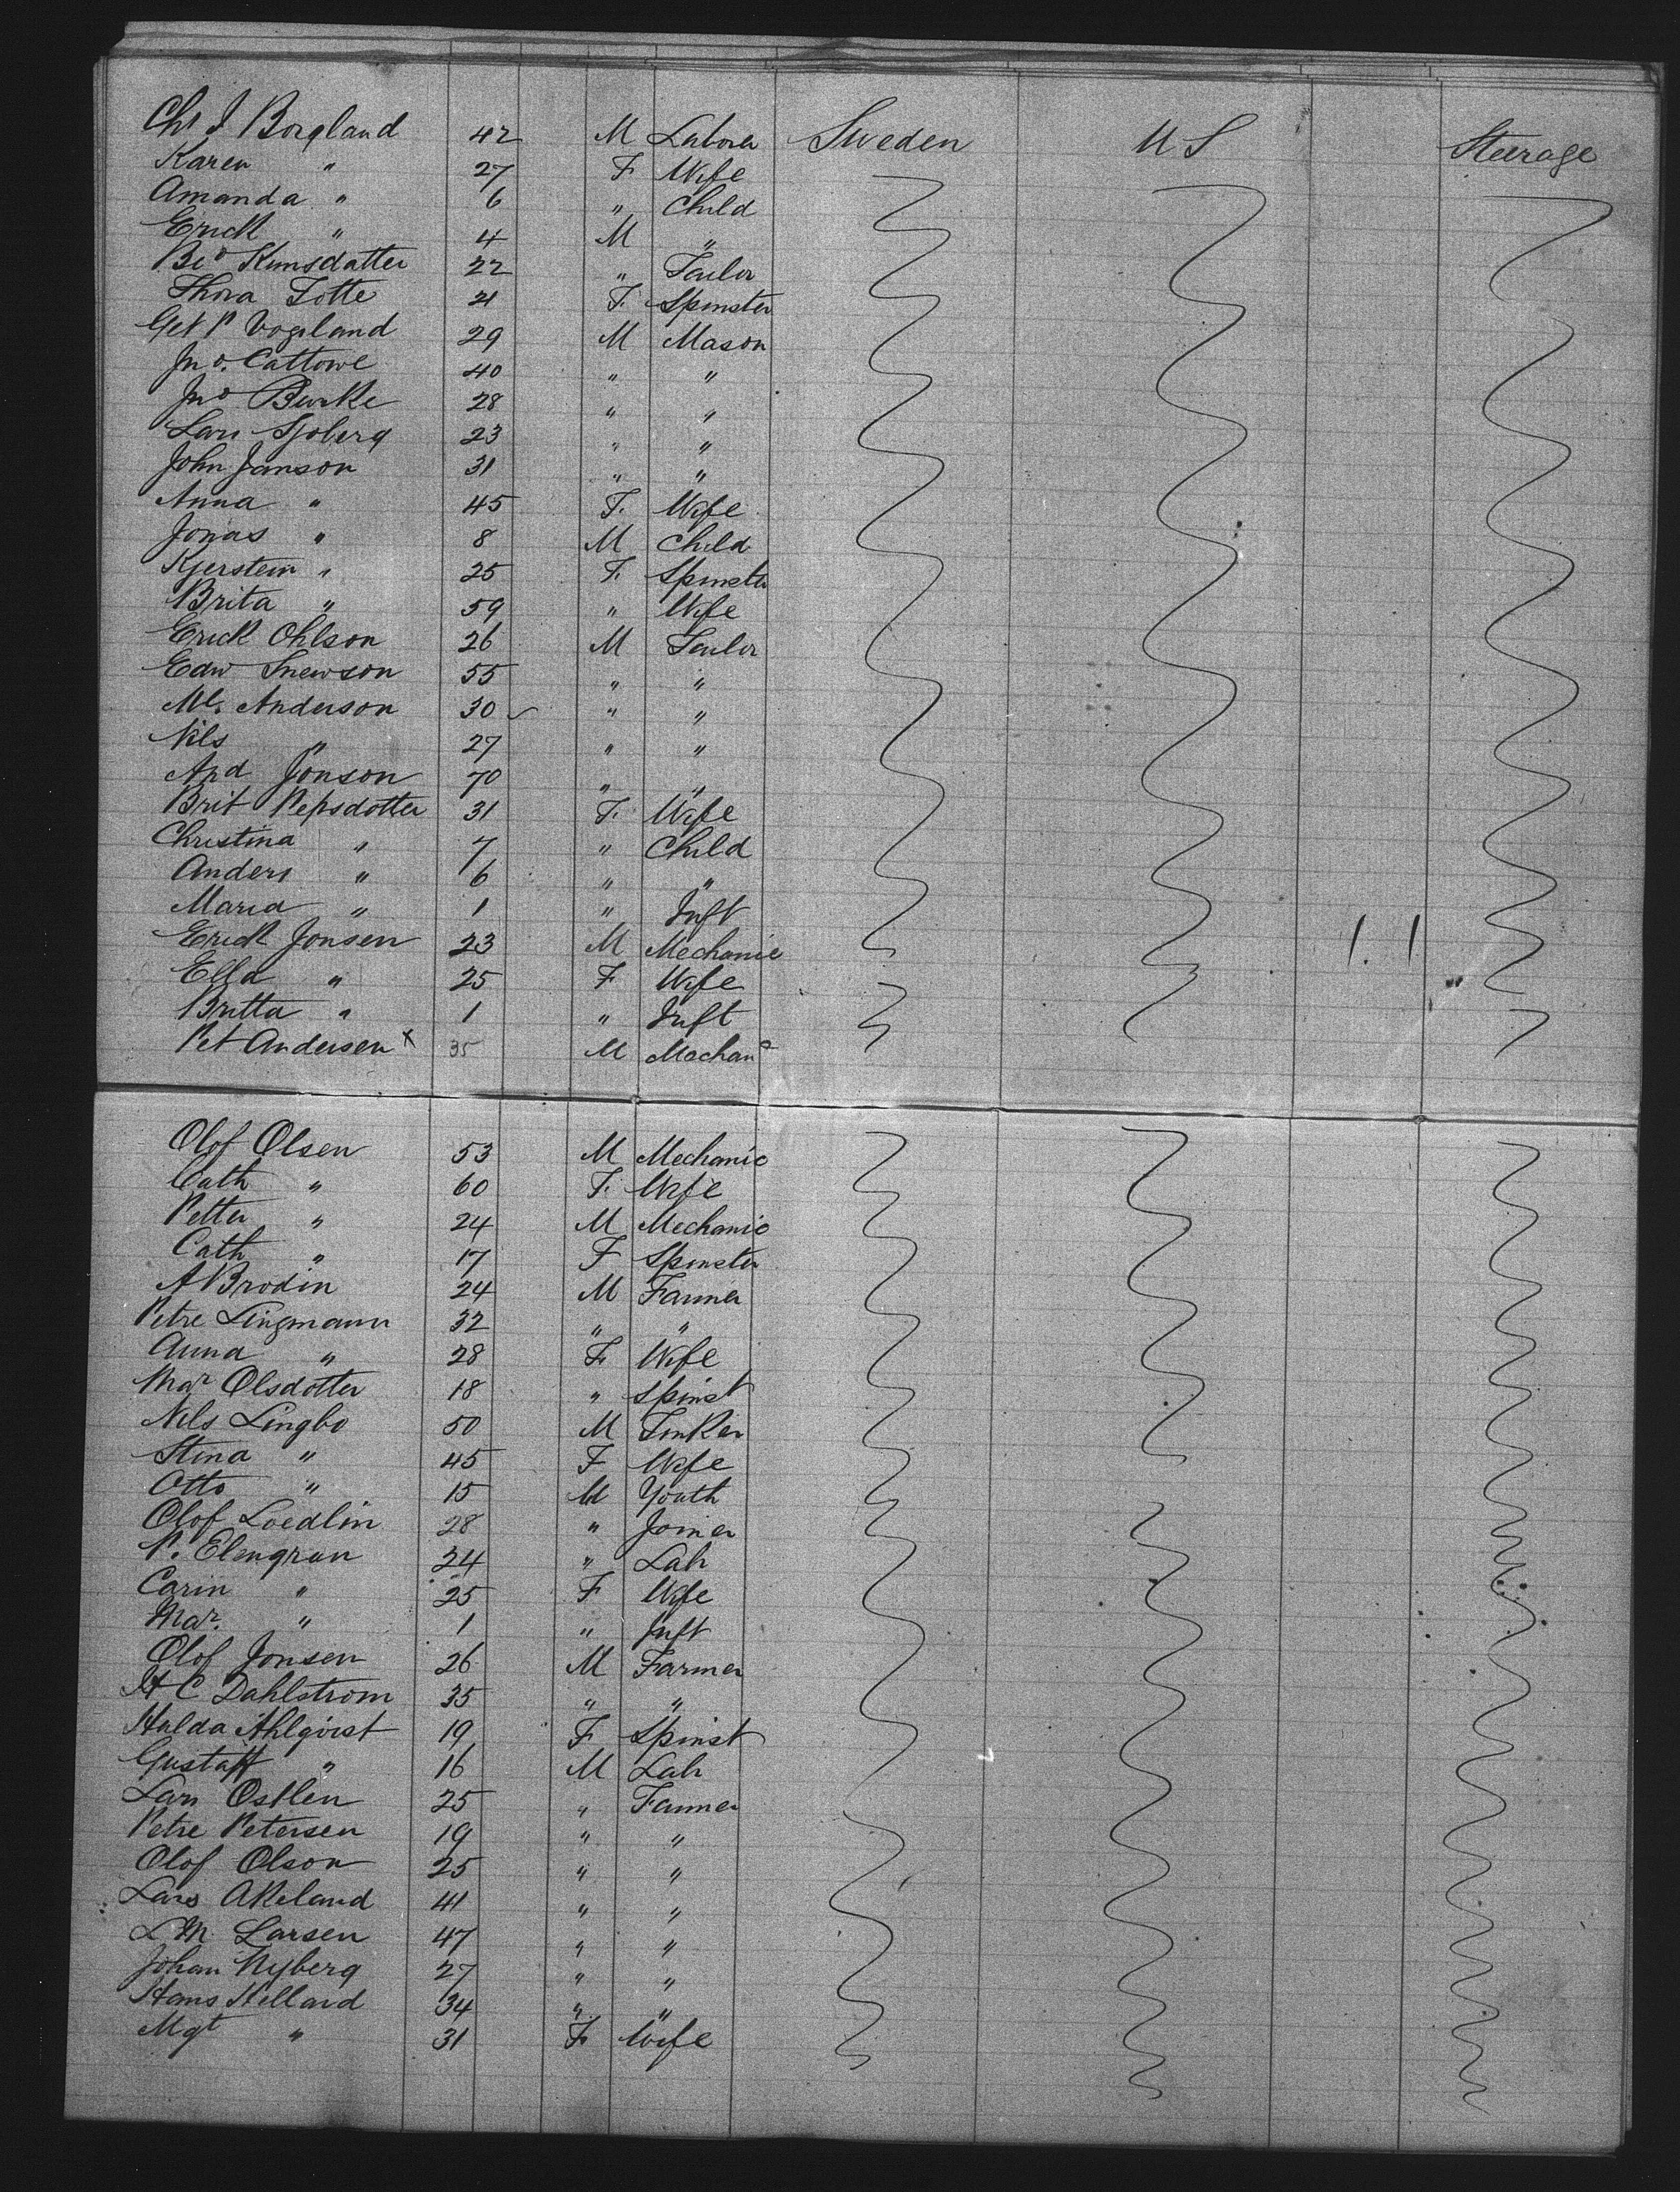 Chs J Borgland 42 M Labore Sweden U S Steerage
Karen " 27 F Wife
Amanda " 6 " Child
Erick " 4 M "
Knnsdatter 22 " Tailor
Thora Totte 21 F. Spinster
Get P Vogeland 29 M Mason
Jno. Cattowe 40 " "
Jno Burke 28 " "
Lars Sjoberg 23 " "
John Janson 31 " "
Anna " 45 F. Wife
Jonas " 8 M Child
Kjerstein " 25 F. Spinster
Brita " 59 " Wife
Erick Ohlson 26 M Tailor
Edw Snewson 55 " "
Anderson 30 " "
Nils " 27 " "
And Jonson 70 " "
Brit Pepsdotter 31 F. Wife
Christina " 7 " Child
Anders " 6 " "
Maria " 1 " Inft
Erick Jonsen 23 M Mechanic
Ella " 25 F Wife
Britta " 1 " Inft
Pet Andersen x 35 M Mechanc
Olof Olsen 53 M Mechanic
Cath " 60 F. Wife
Petter " 24 M Mechanic
Cath " 17 F Spinster
A Brodin 24 M Farmer
Petre Lingmann 32 " "
Anna " 28 F. Wife
Mar Olsdotter 18 " Spinst
Nils Lingbo 50 M Tinker
Stina " 45 F Wife
Otto " 15 M Youth
Olof Loedlin 28 " Joiner
P. Elmgran 24 " Lab
Carin " 25 F Wife
Mar. " 1 " Inft
Olof Jonsen 26 M Farmer
H C Dahlstrom 35 " "
Hulda Ahlqvist 19 F Spinst
Gustaff " 16 M Lab
Lars Ostlen 25 " Farmer
Petre Petersen 19 " "
Olof Olson 25 " "
Lars Akeland 41 " "
L M Larsen 47 " "
Johan Nyberg 27 " "
Hans Helland 34 " "
Mgt " 31 F. Wife